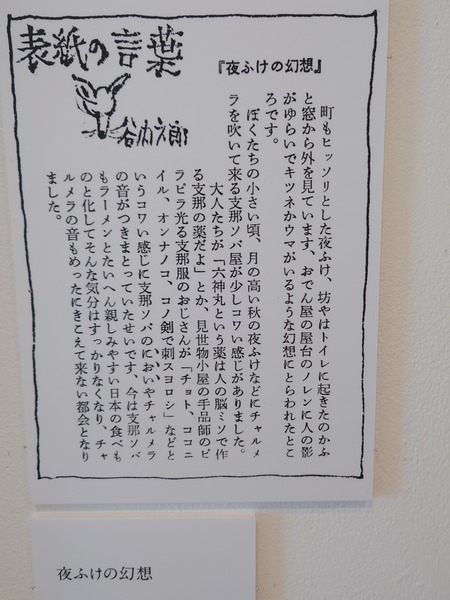 表紙の言葉
谷内六郎
『夜ふけの幻想』
町もヒッソリとした夜ふけ、坊やはトイレに起きたのかふ
と窓から外を見ています、おでん屋の屋台のノレンに人の影
がゆらいでキツネかウマがいるような幻想にとらわれたとこ
ろです。
ぼくたちの小さい頃、月の高い秋の夜ふけなどにチャルメ
ラを吹いて来る支那ソバ屋が少しコワい感じがありました。
大人たちが「六神丸という薬は人の脳ミソで作
る支那の薬だよ」とか、見世物小屋の手品師のピ
ラピラ光る支那服のおじさんが「チョト、ココニ
イル、オンナノコ、コノ剣で刺スヨロシ」などと
いうコワい感じに支那ソバのにおいやチャルメラ
の音がつきまとっていたせいです、今は支那ソバ
もラーメンとたいへん親しみやすい日本の食べも
のと化してそんな気分はすっかりなくなり、チャ
ルメラの音もめったにきこえて来ない都会となり
ました。
夜ふけの幻想